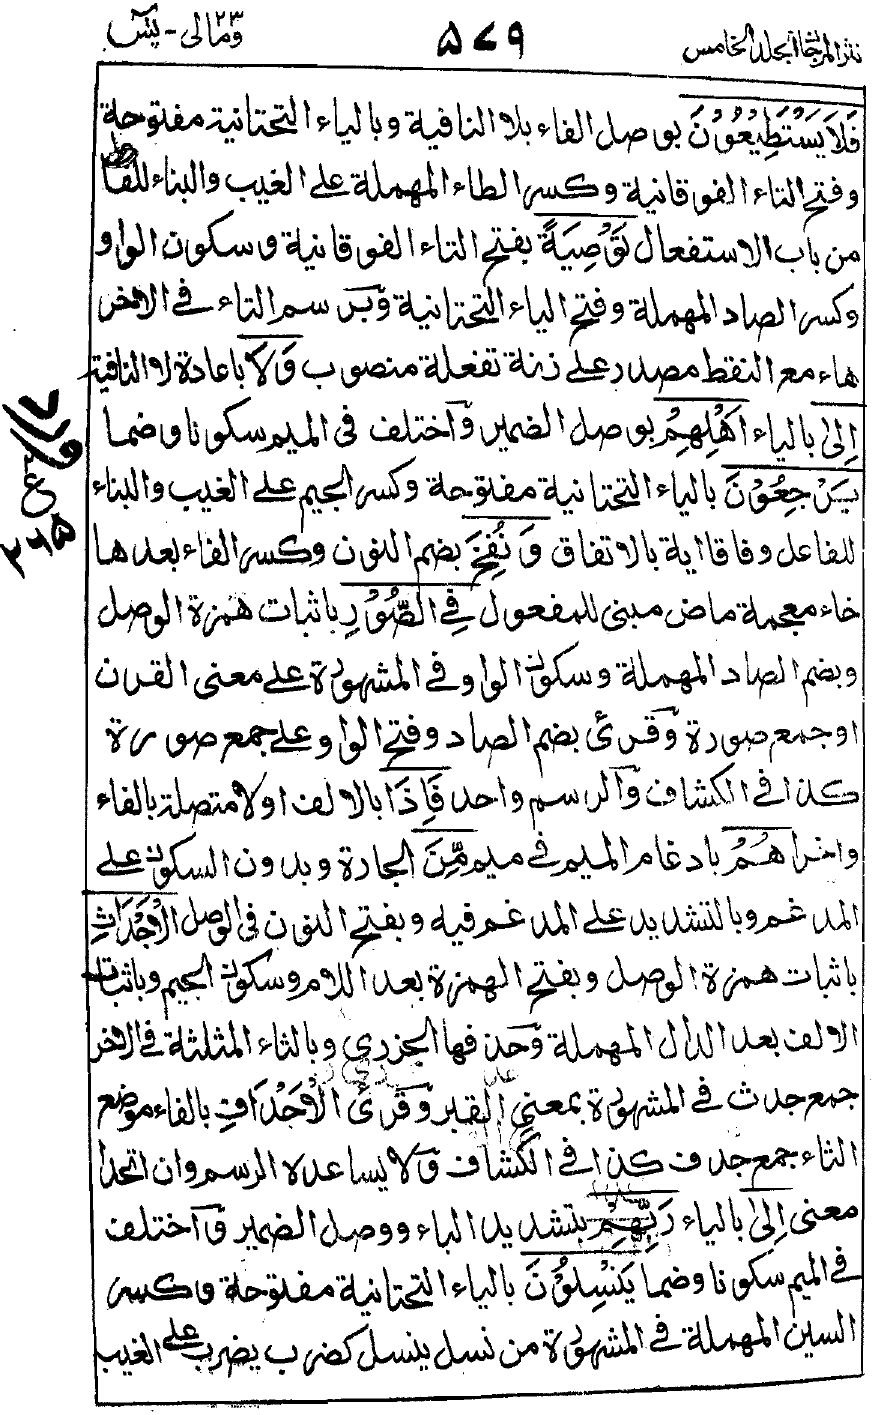 نثر المرجان المجلد الخامس
۵۷۹
ومالی ۲۳ - یٰسٓ
فَلَا يَسْتَطِيْعُوْنَ بوصل الفاء بلا النافية وبالياء التحتانية مفتوحة
وفتح التاء الفوقانية وكسر الطاء المهملة على الغيب والبناء للفاعل
من باب الاستفعال تَوْصِيَةً بفتح التاء الفوقانية وسكون الواو
وكسر الصاد المهملة وفتح الياء التحتانية وَبرسم التاء في الاخر
هاء مع النقط مصدر على زنة تفعلة منصوب وَلَا باعادة لا النافية
اِلٰى بالياء اَهْلِهِمْ بوصل الضمير وَاختلف في الميم سكونا وضما
يَرْجِعُوْنَ بالياء التحتانية مفتوحة وكسر الجيم على الغيب والبناء
للفاعل وفاقا اية بالاتفاق وَنُفِخَ بضم النون وكسر الفاء بعدها
خاء معجمة ماض مبنى للمفعول فِي الصُّوْرِ باثبات همزة الوصل
وبضم الصاد المهملة وسكون الواو في المشهورة على معنى القرن
او جمع صورة وَقرئ بضم الصاد وفتح الواو على جمع صورة
كذا في الكشاف وَالرسم واحد فَاِذَا بالالف اولا متصلة بالفاء
واخرا هُمْ بادغام الميم في ميم مِّنَ الجارة وبدون السكون على
المدغم وبالتشديد على المدغم فيه وبفتح النون في الوصل الْاَجْدَاثِ
باثبات همزة الوصل وبفتح الهمزة بعد اللام وسكون الجيم وباثبات
الالف بعد الدال المهملة وَحذفها الجزري وبالثاء المثلثة في الاخر
جمع جدث في المشهورة بمعنى القبر وَقرئ الْاَجْدَافِ بالفاء موضع
الثاء جمع جدف كذا في الكشاف وَلا يساعده الرسم وان اتحدا
معنى اِلٰى بالياء رَبِّهِمْ بتشديد الباء ووصل الضمير وَاختلف
في الميم سكونا وضما يَنْسِلُوْنَ بالياء التحتانية مفتوحة وكسر
السين المهملة في المشهورة من نسل ينسل كضرب يضرب على الغيب